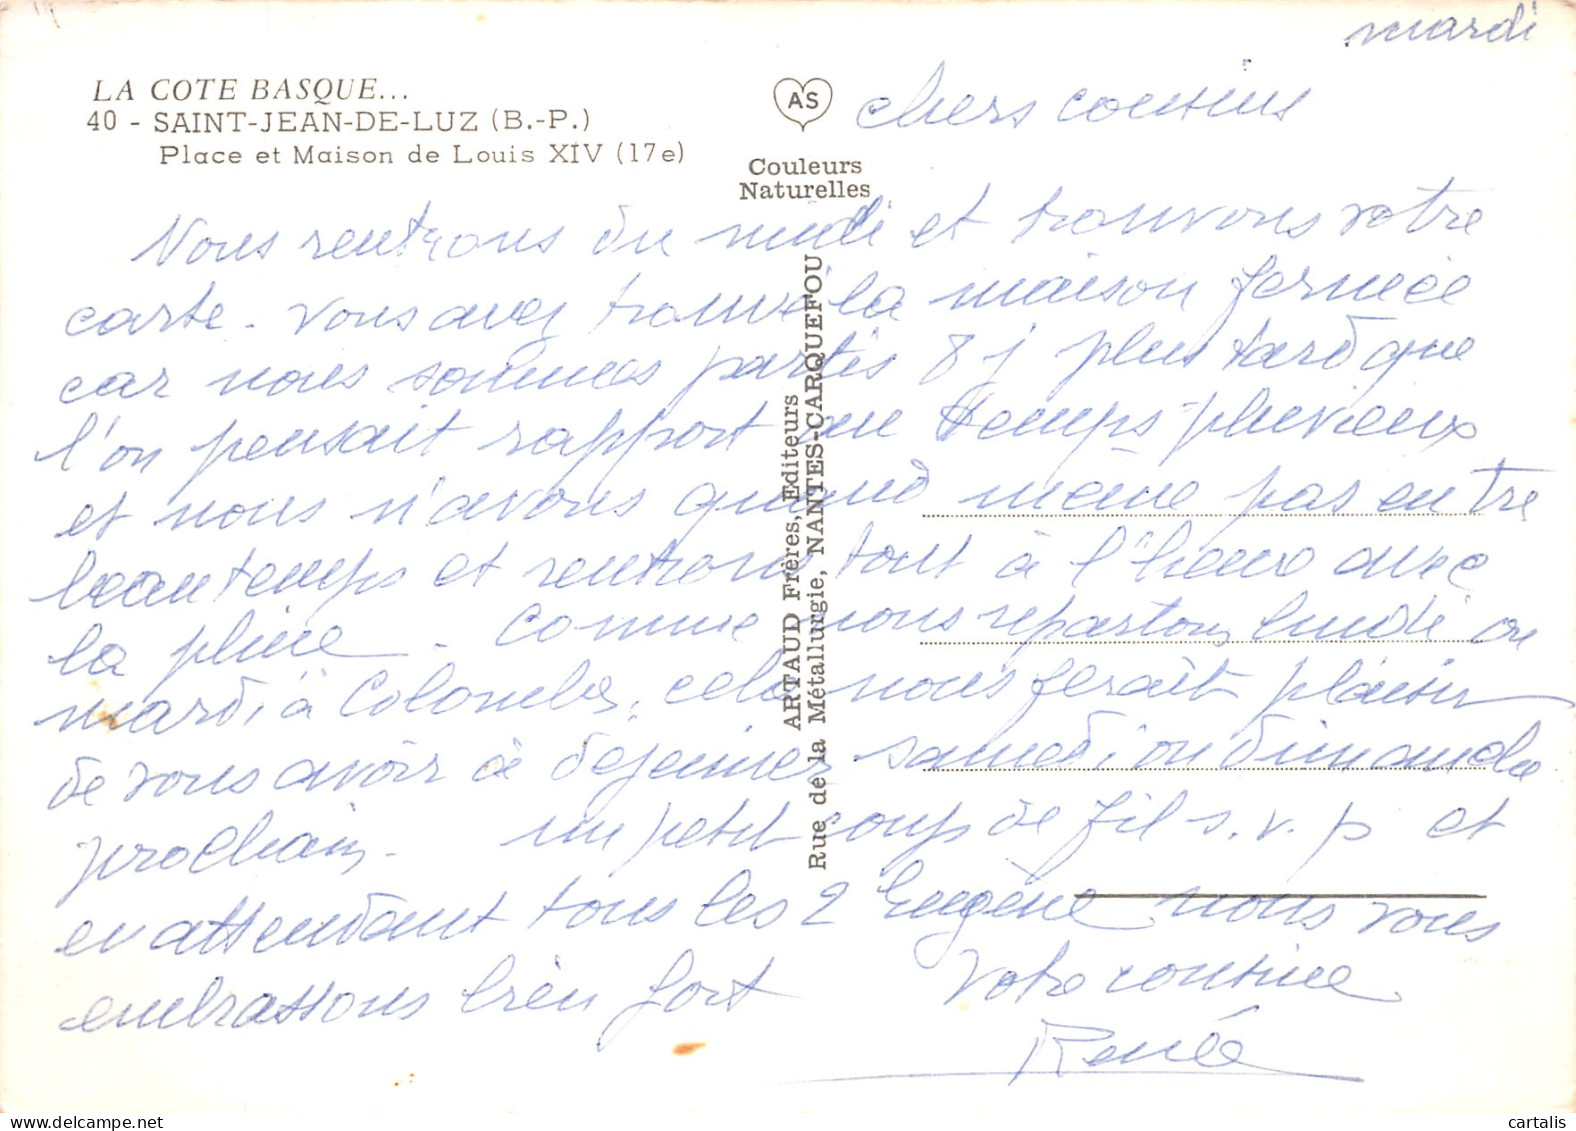 mardi
LA COTE BASQUE...
40 - SAINT-JEAN-DE-LUZ (B.-P.)
Place et Maison de Louis XIV (17e)
AS
Couleurs
Naturelles
chers cousins
Nous rentrons du midi et trouvons votre
carte. vous avez trouvé la maison fermée
car nous sommes partis 8 j plus tard que
l'on pensait rapport au temps pluvieux
et nous n'avons quand même pas eu tre
beau temps et rentrons tout à l'heure avec
la pluie. Comme nous repartons lundi ou
mardi à Colombes, cela nous ferait plaisir
de vous avoir à dejeuner samedi ou dimanche
prochain. un petit coup de fil s.v.p et
en attendant tous les 2 Eugène nous vous
embrassons bien fort votre cousine
Renée
ARTAUD Frères, Editeurs
Rue de la Métallurgie, NANTES-CARQUEFOU
delcampe.net
cartalis